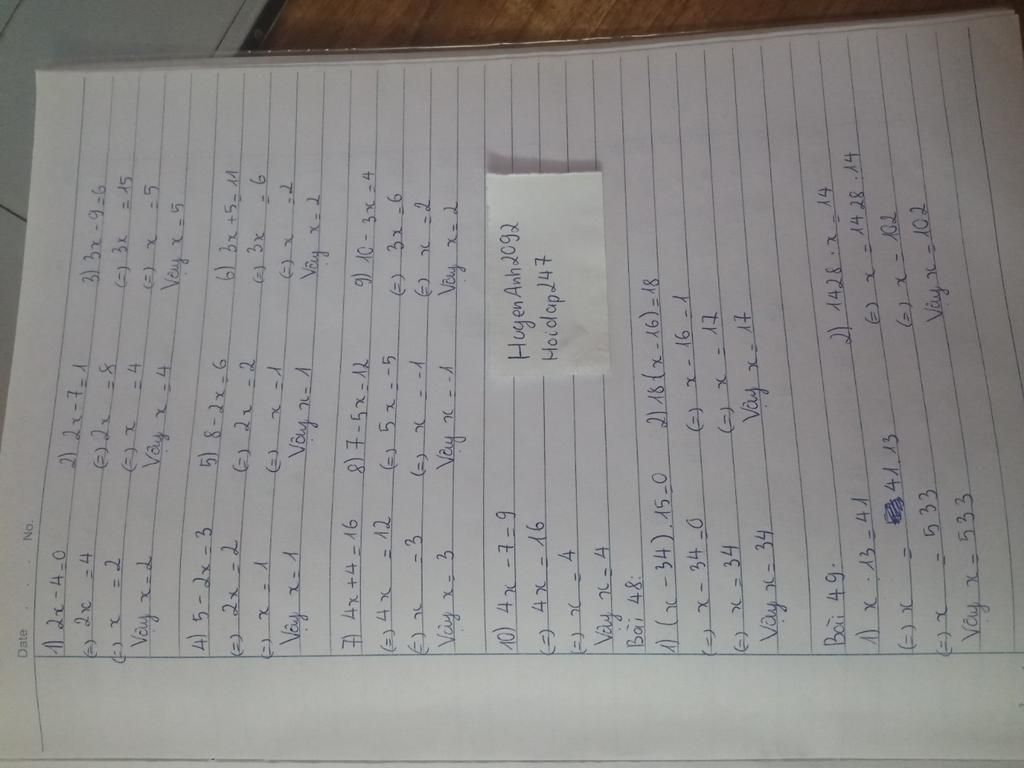 Date . . . No.
1) 2x-4=0 2) 2x-7=1 3) 3x-9=6
(=) 2x = 4 (=) 2x = 8 (=) 3x = 15
(=) x = 2 (=) x = 4 (=) x = 5
Vậy x=2 Vậy x = 4 Vậy x = 5
4) 5-2x=3 5) 8-2x=6 6) 3x+5=11
(=) 2x = 2 (=) 2x = 2 (=) 3x = 6
(=) x = 1 (=) x = 1 (=) x = 2
Vậy x = 1 Vậy x=1 Vậy x=2
7) 4x+4=16 8) 7-5x=12 9) 10-3x=4
(=) 4x = 12 (=) 5x = -5 (=) 3x = 6
(=) x = 3 (=) x = -1 (=) x = 2
Vậy x = 3 Vậy x = -1 Vậy x = 2
10) 4x-7=9
(=) 4x = 16
(=) x = 4
Vậy x = 4
HuyenAnh2092
Hoidap247
Bài 48:
1) (x-34).15=0 2) 18(x-16)=18
(=) x-34=0 (=) x-16=1
(=) x = 34 (=) x = 17
Vậy x=34 Vậy x=17
Bài 49.
1) x : 13 = 41 2) 1428 : x = 14
(=) x = 41.13 (=) x = 1428 : 14
(=) x = 533 (=) x = 102
Vậy x = 533 Vậy x = 102